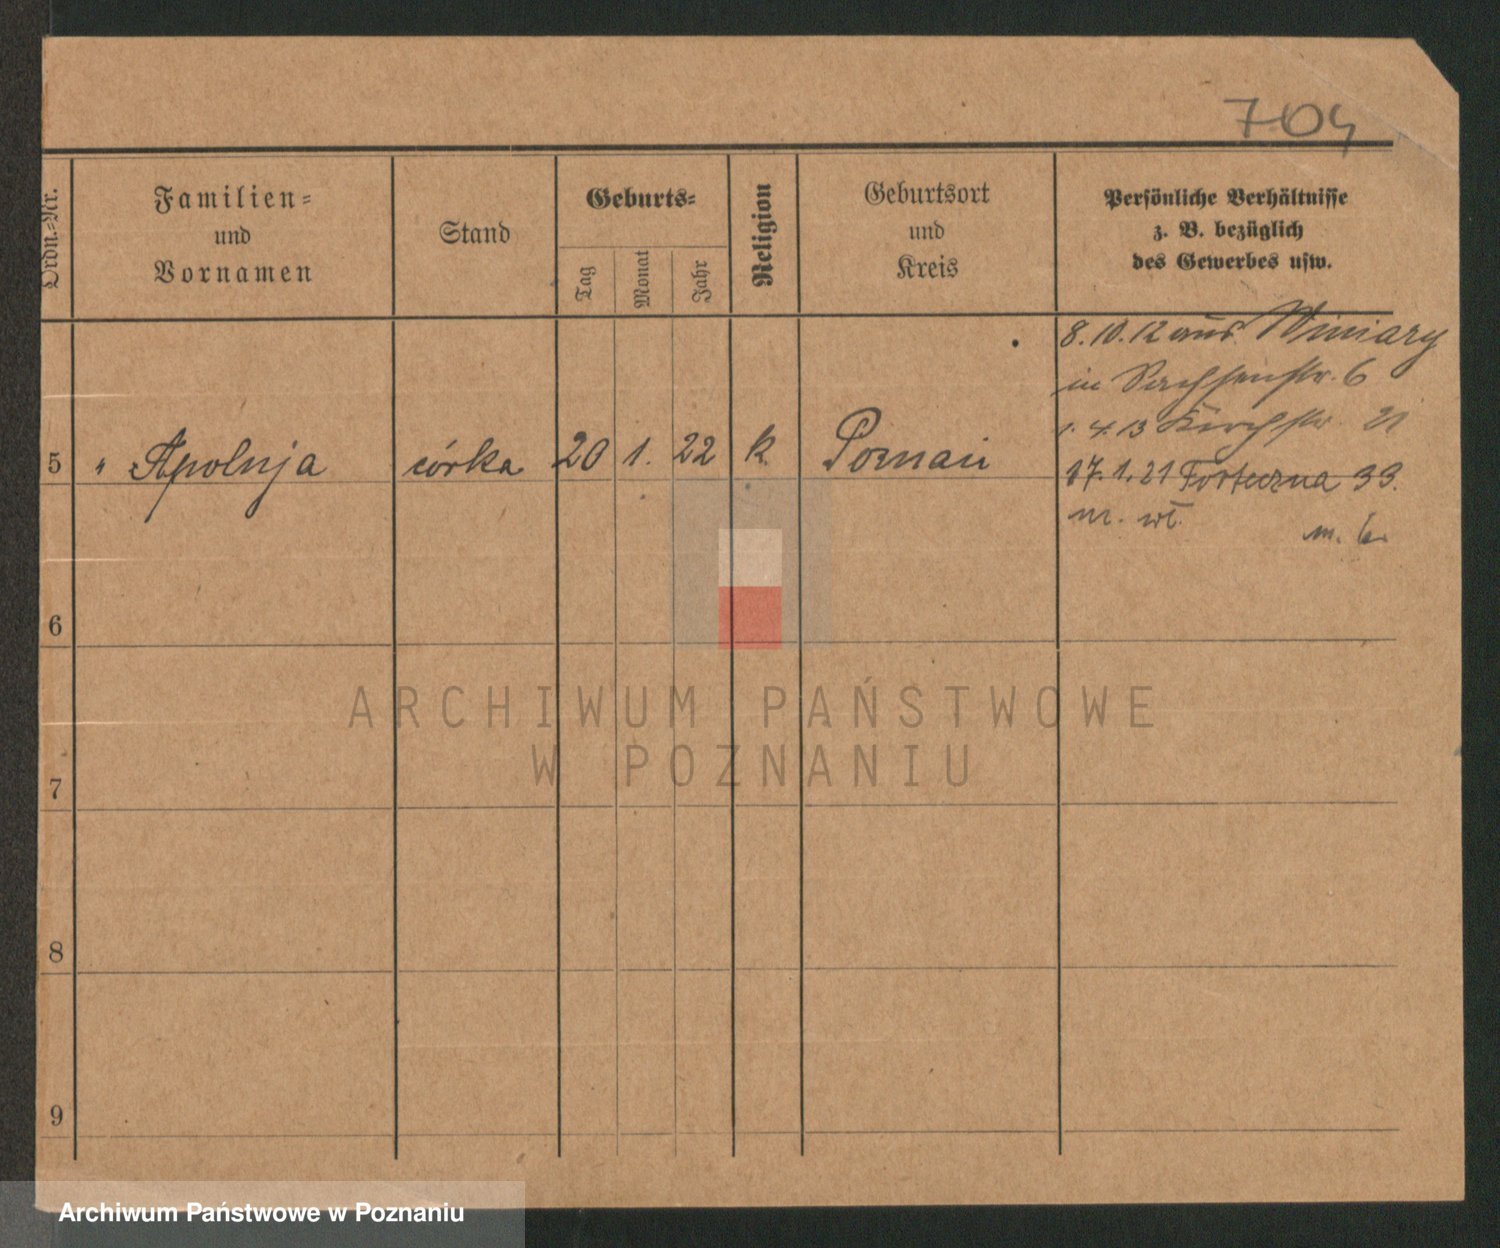 704
Ordn.-Nr.
Familien-
und
Vornamen
Stand
Geburts-
Tag
Monat
Jahr
Religion
Geburtsort
und
Kreis
Persönliche Verhältnisse
z. B. bezüglich
des Gewerbes usw.
8.10.12 aus Winiary
in Sachsenstr. 6
1.4.13 Kirchstr. 21
5 " Apolnja córka 20 1. 22 k. Poznań
17.1.21 Forteczna 33.
m. wł.
m. b.
6
7
8
9
ARCHIWUM PAŃSTWOWE
W POZNANIU
Archiwum Państwowe w Poznaniu